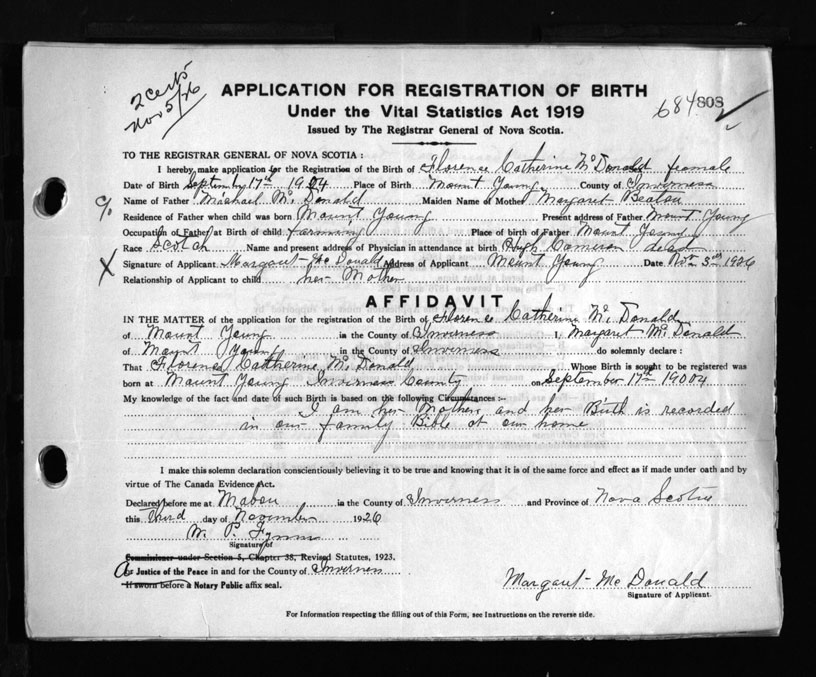 2 certs
Nov 5/26
APPLICATION FOR REGISTRATION OF BIRTH
Under the Vital Statistics Act 1919
684808
Issued by The Registrar General of Nova Scotia.
TO THE REGISTRAR GENERAL OF NOVA SCOTIA:
I hereby make application for the Registration of the Birth of Florence Catherine McDonald female
Date of Birth September 17th 1904 Place of Birth Mount Young County of Inverness
Name of Father Michael McDonald Maiden Name of Mother Margaret Beaton
Residence of Father when child was born Mount Young Present address of Father Mount Young
Occupation of Father at Birth of child farming Place of birth of Father Mount Young
Race Scotch Name and present address of Physician in attendance at birth Hugh Cameron dead
X Signature of Applicant Margaret McDonald Address of Applicant Mount Young Date Nov 3rd 1926
Relationship of Applicant to child her Mother
AFFIDAVIT
IN THE MATTER of the application for the registration of the Birth of Florence Catherine McDonald
of Mount Young in the County of Inverness I, Margaret McDonald
of Mount Young in the County of Inverness do solemnly declare:
That Florence Catherine McDonald Whose Birth is sought to be registered was
born at Mount Young Inverness County on September 17th 19004
My knowledge of the fact and date of such Birth is based on the following Circumstances:-
I am her Mother and her Birth is recorded
in our family Bible at our home
I make this solemn declaration conscientiously believing it to be true and knowing that it is of the same force and effect as if made under oath and by
virtue of The Canada Evidence Act.
Declared before me at Mabou in the County of Inverness and Province of Nova Scotia
this third day of November 1926
W. P.
Signature of
Commissioner under Section 5, Chapter 38, Revised Statutes, 1923.
Justice of the Peace in and for the County of Inverness
If sworn before a Notary Public affix seal.
Margaret McDonald
Signature of Applicant.
For Information respecting the filling out of this Form, see Instructions on the reverse side.